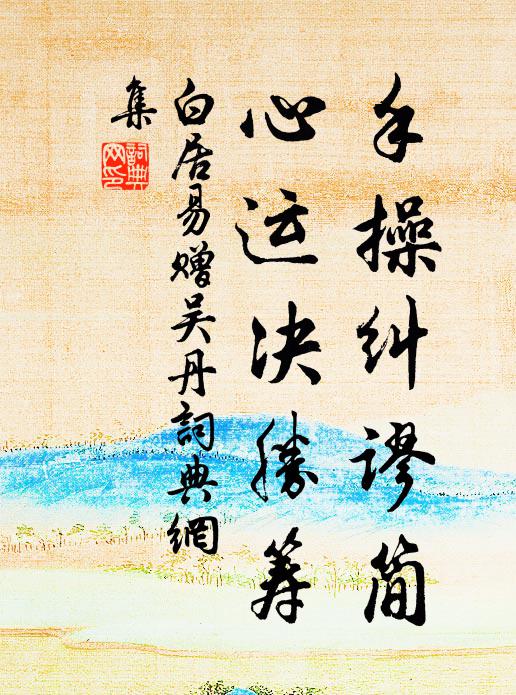 手操纠谬简
心运决胜筹
白居易赠吴丹詞典網
集
詞典网印